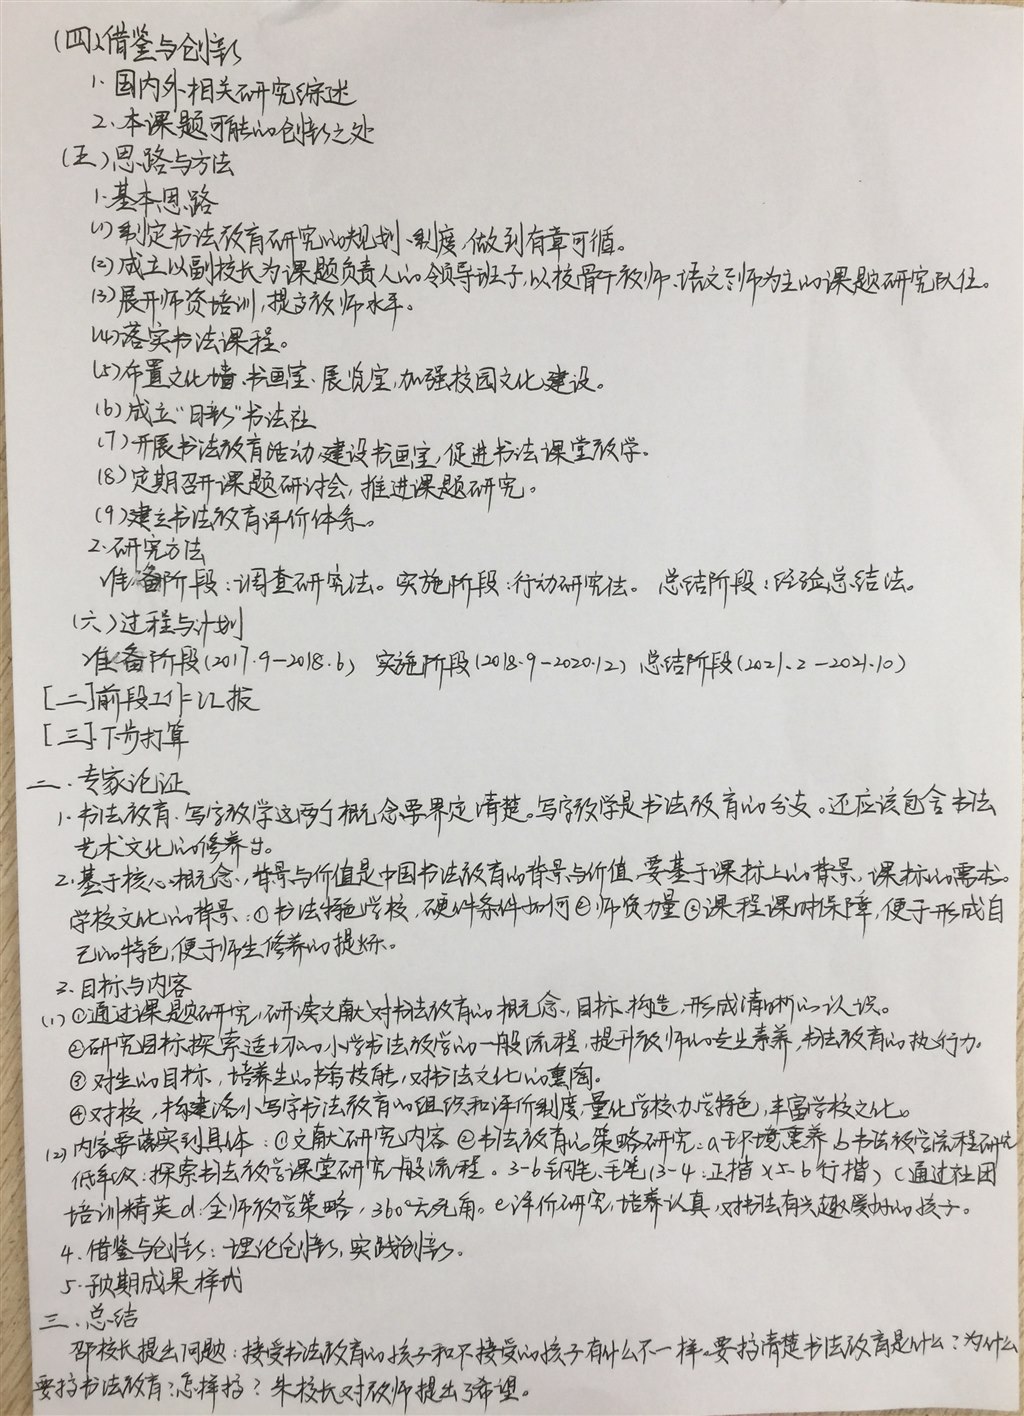 (四)借鉴与创新
1.国内外相关研究综述
2.本课题可能的创新之处
(五)思路与方法
1.基本思路
(1)制定书法教育研究的规划、制度,做到有章可循。
(2)成立以副校长为课题负责人的领导班子,以校骨干教师、语文老师为主的课题研究队伍。
(3)展开师资培训,提高教师水平。
(4)落实书法课程。
(5)布置文化墙、书画室、展览室,加强校园文化建设。
(6)成立“日新”书法社
(7)开展书法教育活动,建设书画室,促进书法课堂教学。
(8)定期召开课题研讨会,推进课题研究。
(9)建立书法教育评价体系。
2.研究方法
准备阶段:调查研究法。实施阶段:行动研究法。总结阶段:经验总结法。
(六)过程与计划
准备阶段(2017.9—2018.6) 实施阶段(2018.9—2020.12) 总结阶段(2021.2—2021.10)
[二]前段工作汇报
[三]下步打算
二.专家论证
1.书法教育、写字教学这两个概念要界定清楚。写字教学是书法教育的分支。还应该包含书法
艺术文化的修养等。
2.基于核心概念,背景与价值是中国书法教育的背景与价值,要基于课标上的背景,课标的需求。
学校文化的背景:①书法特色学校,硬件条件如何②师资力量③课程课时保障,便于形成自
己的特色,便于师生修养的提炼。
3.目标与内容
(1)①通过课题研究,研读文献对书法教育的概念,目标、构造,形成清晰的认识。
②研究目标探索适切的小学书法教学的一般流程,提升教师的专业素养,书法教育的执行力。
③对生的目标,培养生的书写技能,对书法文化的熏陶。
④对校,构建洛小写字书法教育的组织和评价制度,量化学校办学特色,丰富学校文化。
(2)内容要落实到具体:①文献研究内容②书法教育的策略研究:a环境熏养b书法教学流程研究
低年级:探索书法教学课堂研究一般流程。3-6毛钢笔、毛笔(3-4:正楷 5-6行楷)c通过社团
培训精英d.全师教学策略,360°无死角。e评价研究,培养认真,对书法有兴趣爱好的孩子。
4.借鉴与创新:理论创新,实践创新。
5.预期成果样式
三.总结
邵校长提出问题:接受书法教育的孩子和不接受的孩子有什么不一样。要搞清楚书法教育是什么?为什么
要搞书法教育?怎样搞?朱校长对教师提出了希望。